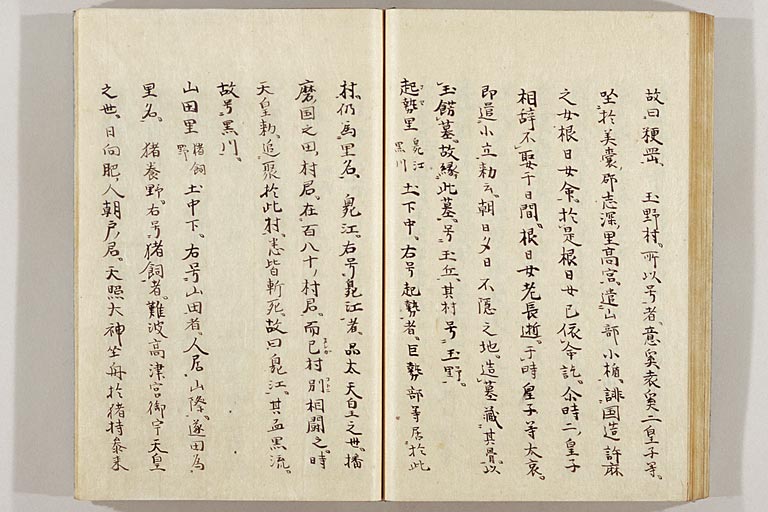 故曰猥岡。玉野村。所以号者。意奚袁奚二皇子等。
坐於美嚢郡志深里高宮。遣山部小楯。誂国造許麻
之女根日女命。於是根日女已依命訖。尒時二皇子
相辞不娶于日間。根日女老長逝。于時皇子等大哀。
即遣小立勅云。朝日夕日不隠之地。造墓蔵其骨。以
玉餝墓。故縁此墓。号玉丘。其村号玉野。
起勢里 臭江 黒川 土下中。右号起勢者。巨勢部等居於此
村。仍為里名。臭江。右号臭江者。品太天皇之世。播
磨国之田村君。在百八十村君。而己村別相闘之。時
天皇勅。追聚於此村。悉皆斬死。故曰臭江。其血黒流。
故号黒川。
山田里 猪飼野 土中下。右号山田者。人居山降。遂由為
里名。猪養野。右号猪飼者。難波高津宮御宇天皇
之世。日向肥人朝戸君。天照大神坐舟於猪持参来